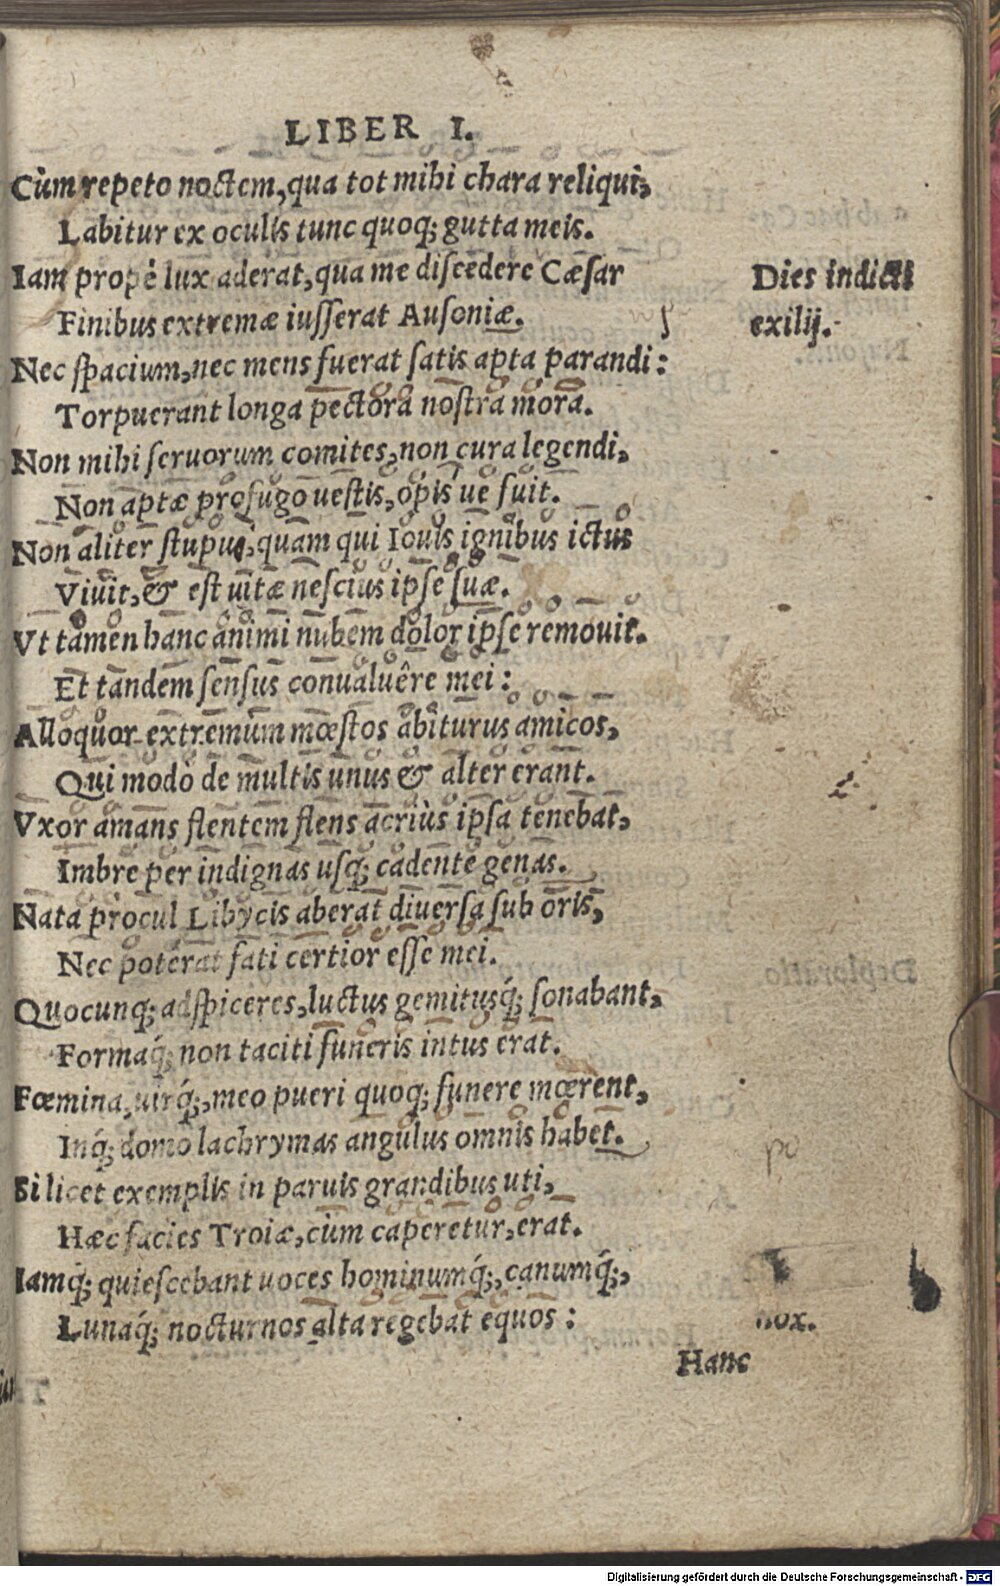 LIBER I.
Cùm repeto noctem, qua tot mihi chara reliqui,
Labitur ex oculis tunc quoq; gutta meis.
Iam propè lux aderat, qua me discedere Cæsar
Finibus extremæ iusserat Ausoniæ.
Dies indicti
exilij.
Nec spacium, nec mens fuerat satis apta parandi:
Torpuerant longa pectora nostra mora.
Non mihi seruorum comites, non cura legendi,
Non aptæ profugo uestis, opis ue fuit.
Non aliter stupui, quàm qui Iouis ignibus ictus
Viuit, & est uitæ nescius ipse suæ.
Vt tamen hanc animi nubem dolor ipse remouit.
Et tandem sensus conualuêre mei:
Alloquor extremùm mœstos abiturus amicos,
Qui modò de multis unus & alter erant.
Vxor amans flentem flens acriùs ipsa tenebat,
Imbre per indignas usq; cadente genas.
Nata procul Libycis aberat diuersa sub oris,
Nec poterat fati certior esse mei.
Quocunq; adspiceres, luctus gemitusq́; sonabant,
Formaq́; non taciti funeris intus erat.
Fœmina, uirq́;, meo pueri quoq; funere mœrent,
Inq́; domo lachrymas angulus omnis habet.
Si licet exemplis in paruis grandibus uti,
Hæc facies Troiæ, cùm caperetur, erat.
Iamq́; quiescebant uoces hominumq́;, canumq́;,
Lunaq́; nocturnos alta regebat equos:
nox.
Hanc
Digitalisierung gefördert durch die Deutsche Forschungsgemeinschaft - DFG